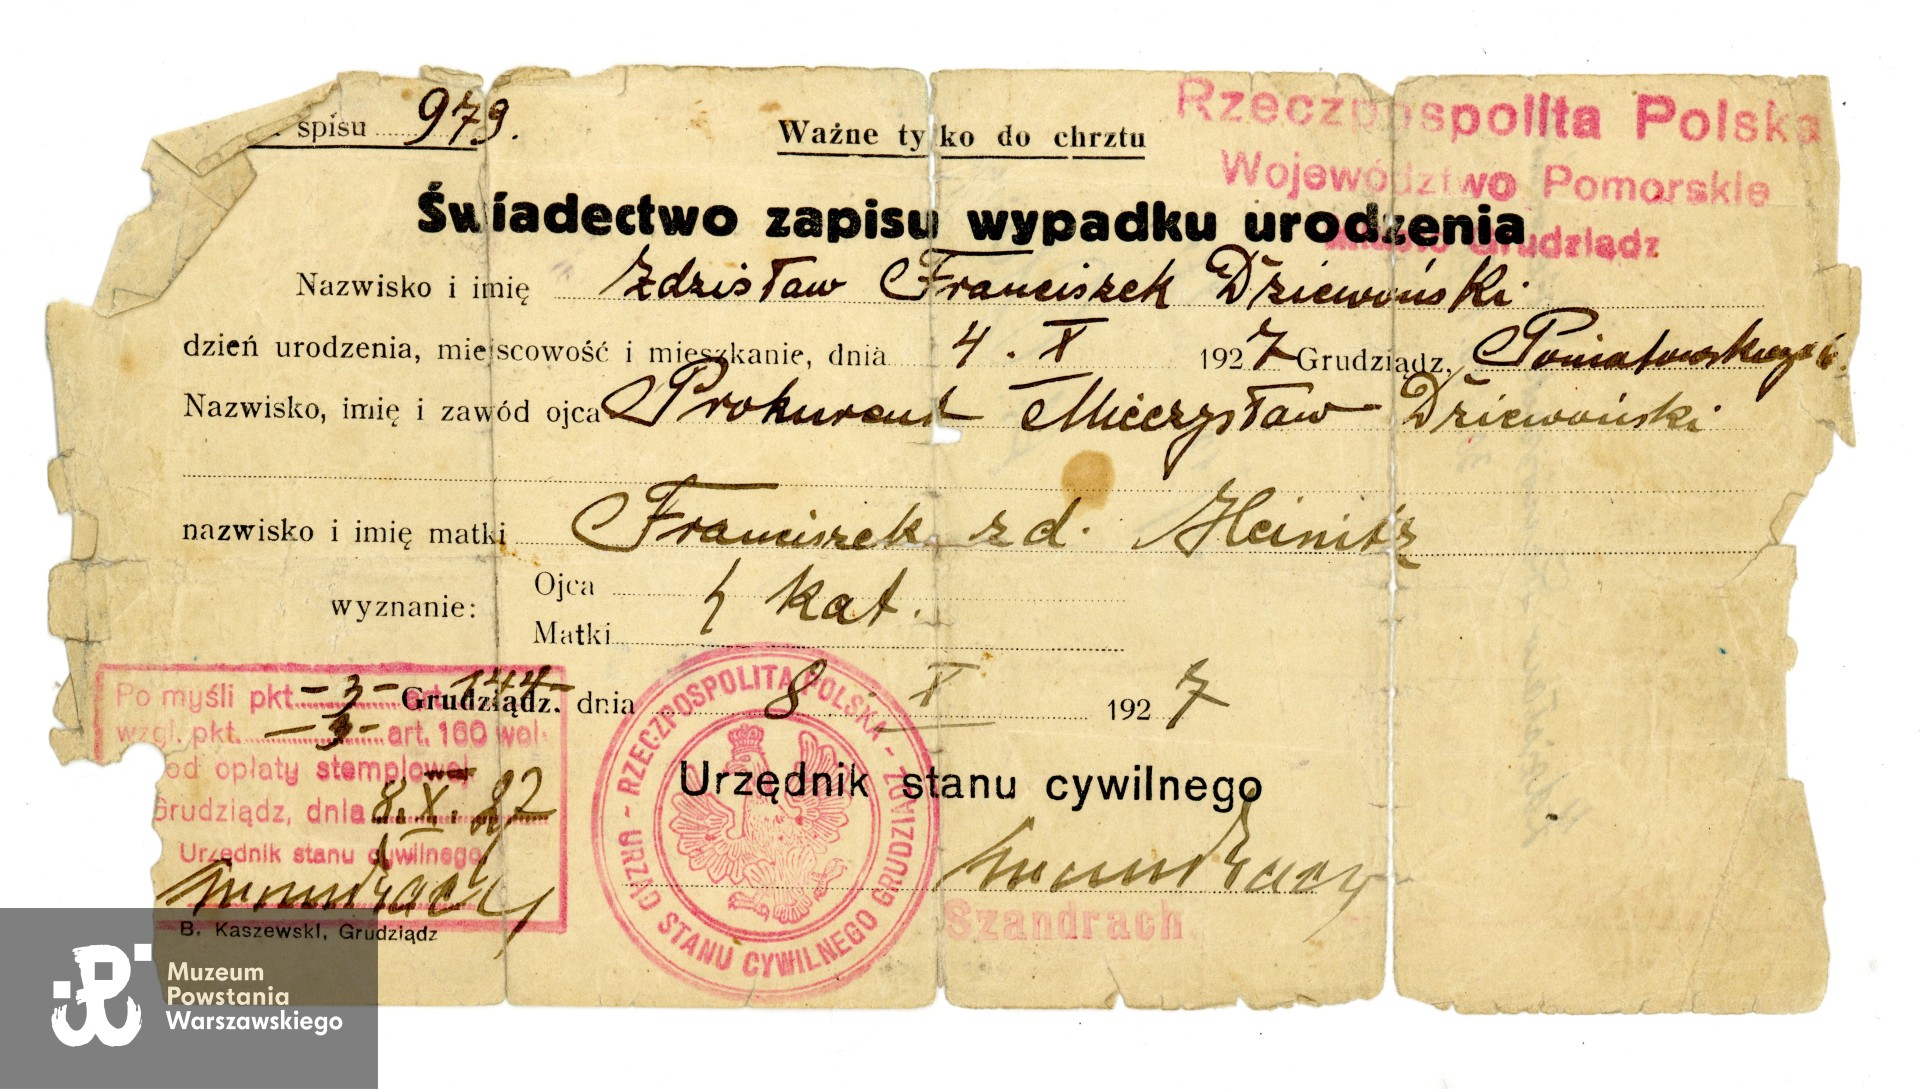 spisu 979.
Ważne tylko do chrztu
Rzeczpospolita Polska
Województwo Pomorskie
Miasto Grudziądz
Świadectwo zapisu wypadku urodzenia
Nazwisko i imię Zdzisław Franciszek Dziewoński
dzień urodzenia, miejscowość i mieszkanie, dnia 4. X 1927 Grudziądz, Poniatowskiego
Nazwisko, imię i zawód ojca Prokurent Mieczysław Dziewoński
nazwisko i imię matki Franciszek zd. Heinitz
wyznanie: Ojca
kat.
Matki
Grudziądz, dnia 8 X 1927
Po myśli pkt. -3- art. 144
wzgl. pkt. -3- art. 160 wol.
od opłaty stemplowej
Grudziądz, dnia 8.X.27
Urzędnik stanu cywilnego
B. Kaszewski, Grudziądz
RZECZPOSPOLITA POLSKA - URZĄD STANU CYWILNEGO GRUDZIĄDZ -
Urzędnik stanu cywilnego
Szandrach
Muzeum
Powstania
Warszawskiego